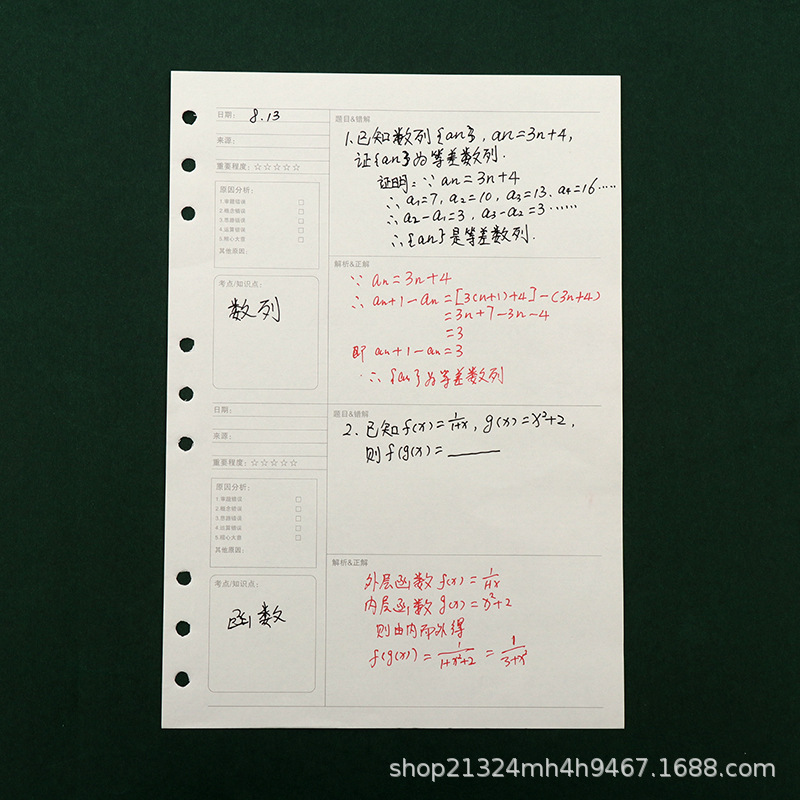 日期： 8.13
来源：
重要程度：☆☆☆☆☆
原因分析：
1.审题错误
2.概念错误
3.思路错误
4.运算错误
5.粗心大意
其他原因：
考点/知识点：
数列
题目&错解
1.已知数列{an}，an=3n+4，
证{an}为等差数列．
证明：∵an=3n+4
∴a1=7, a2=10, a3=13、a4=16……
∴a2-a1=3, a3-a2=3……
∴{an}是等差数列．
解析&正解
∵ an=3n+4
∴ an+1-an=[3(n+1)+4]-(3n+4)
=3n+7-3n-4
=3
即 an+1-an=3
∴{an}为等差数列
日期：
来源：
重要程度：☆☆☆☆☆
原因分析：
1.审题错误
2.概念错误
3.思路错误
4.运算错误
5.粗心大意
其他原因：
考点/知识点：
函数
题目&错解
2.已知f(x)=1/1+x，g(x)=x²+2，
则f(g(x)=______
解析&正解
外层函数f(x)=1/1+x
内层函数g(x)=x²+2
则由内而外得
f(g(x))=1/1+x²+2=1/3+x²
shop21324mh4h9467.1688.com